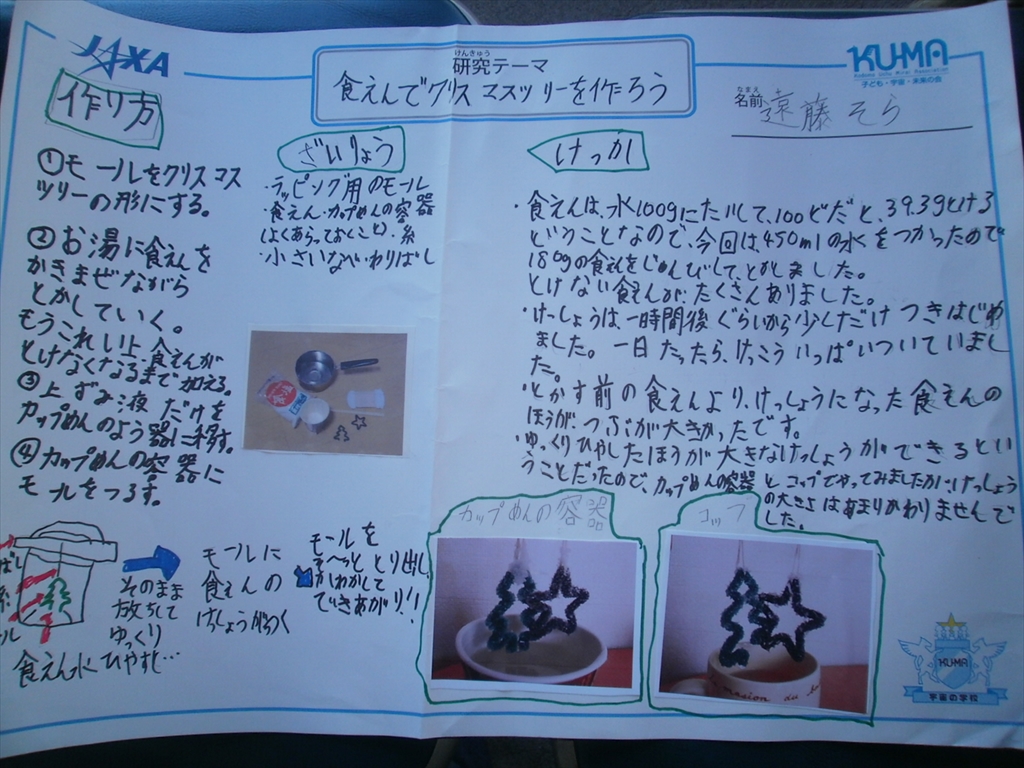 JAXA
けんきゅう
研究テーマ
食えんでクリスマスツリーを作ろう
KU-MA
子ども・宇宙・未来の会
なまえ
名前 遠藤そら
作り方
①モールをクリスマス
ツリーの形にする。
②お湯に食えんを
かきまぜながら
とかしていく。
もうこれい上食えんが
とけなくなるまで加える。
③上ずみ液だけを
カップめんのよう器に移す。
④カップめんの容器に
モールをつるす。
そのまま
放ちして
ゆっくり
ひやすと…
食えん水
モールに
食えんの
けっしょうがつく
モールを
そ〜っととり出し
かわかして
できあがり!!
ざいりょう
・ラッピング用のモール
・食えん・カップめんの容器
(よくあらっておくこと)・糸
・小さいなべ・わりばし
けっか
・食えんは、水100gにたいして、100どだと、39.3gとける
ということなので、今回は450mlの水をつかったので
180gの食えんをじゅんびして、とかしました。
とけない食えんが、たくさんありました。
・けっしょうは、一時間後ぐらいから少しだけつきはじめ
ました。一日たったら、けっこういっぱいついていまし
た。
・とかす前の食えんより、けっしょうになった食えんの
ほうが、つぶが大きかったです。
・ゆっくりひやしたほうが大きなけっしょうができるとい
うことだったので、カップめんの容器とコップでやってみましたが、けっしょう
の大きさはあまりかわりませんで
した。
カップめんの容器
コップ
KU-MA
宇宙の学校